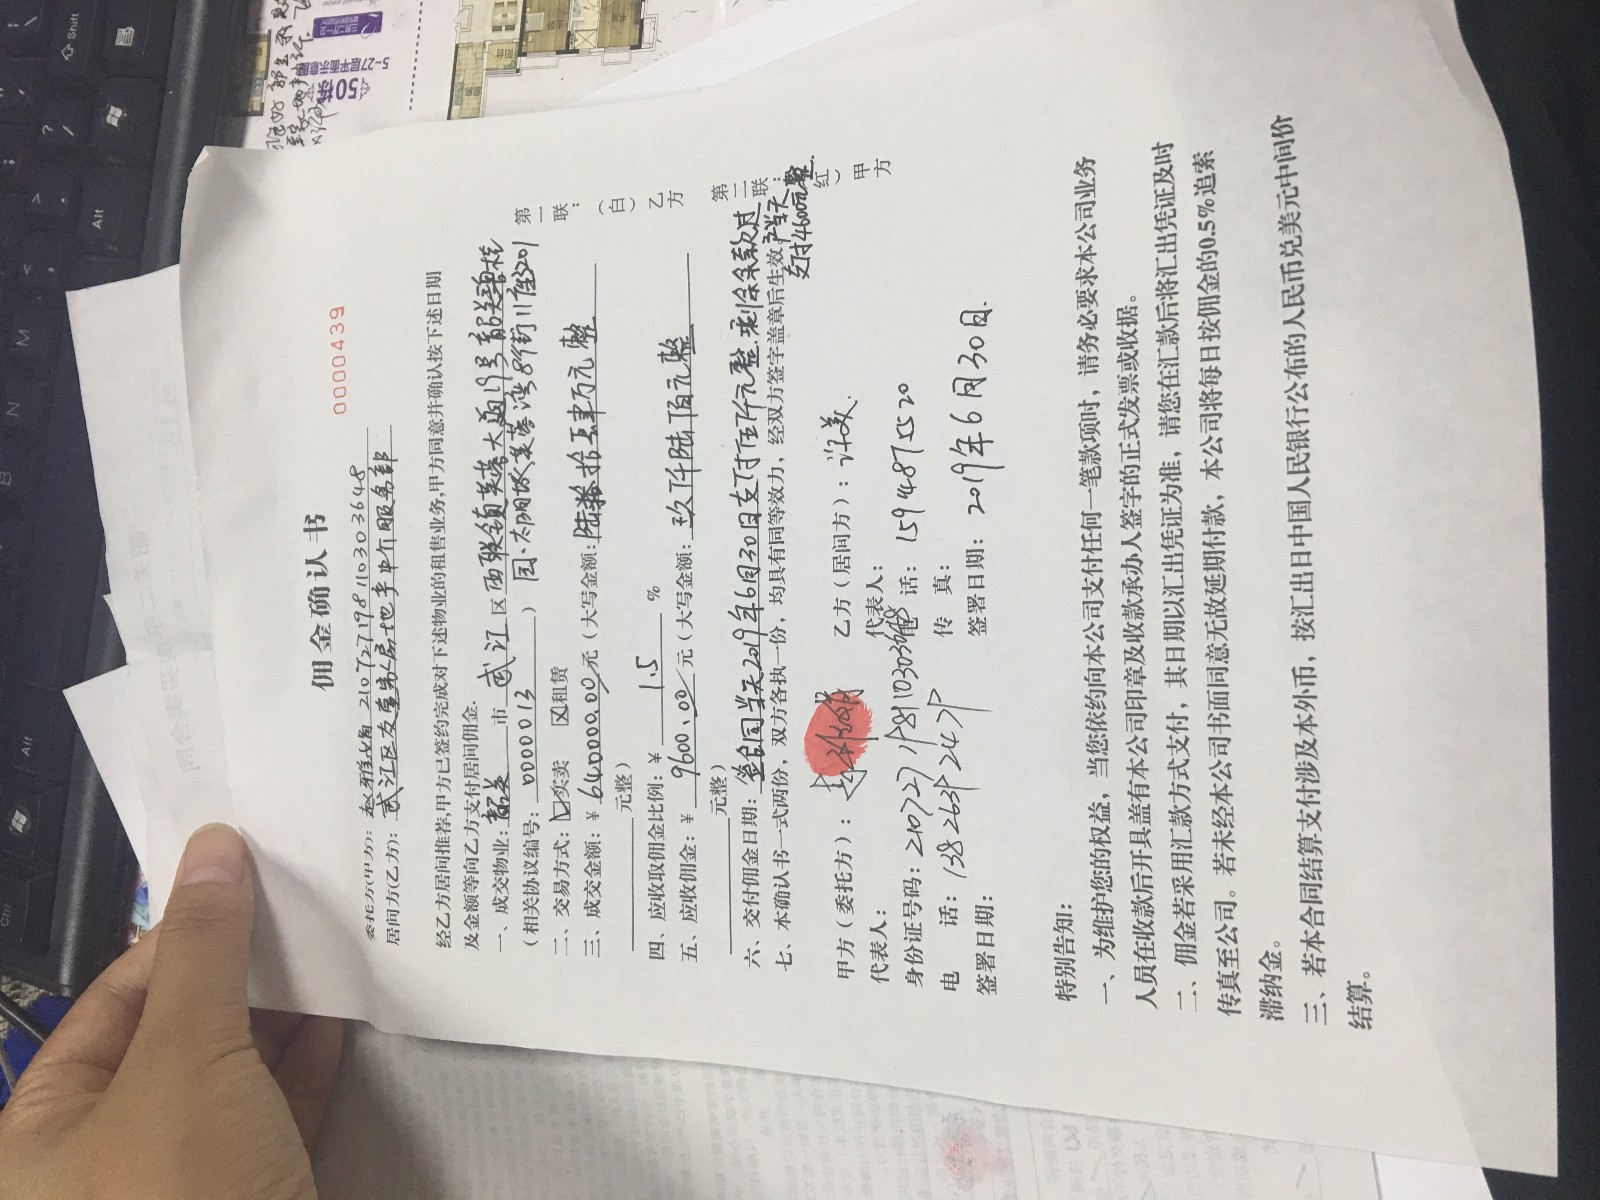 佣金确认书
0000439
委托方(甲方): 210727198110303648
居间方(乙方): 武江区友家房地产中介服务部
经乙方居间推荐,甲方已签约完成对下述物业的租售业务,甲方同意并确认按下述日期
及金额等向乙方支付居间佣金.
一、成交物业: 韶关 市 武江 区 西联镇芙蓉大道19号韶关碧桂
园·太阳城芙蓉湾89街11座3201
(相关协议编号: 0000013 )
二、交易方式: ☑买卖 ☒租赁
三、成交金额: ¥ 640000.00 元 (大写金额: 陆拾肆万元整
元整)
四、应收取佣金比例: ¥ 1.5 %
五、应收佣金: ¥ 9600.00 元 (大写金额: 玖仟陆佰元整
元整)
六、交付佣金日期: 签合同当天2019年6月30日支付伍仟元整.剩余款过
户当天支付4600元整.
七、本确认书一式两份, 双方各执一份, 均具有同等效力, 经双方签字盖章后生效
第一联:(白)乙方
第二联:(红)甲方
甲方 (委托方):
乙方 (居间方): 许美.
代表人:
代表人:
身份证号码: 210727198110303648
电 话: 15948755520
电 话: 13826312477
传 真:
签署日期:
签署日期: 2019年6月30日.
特别告知:
一、为维护您的权益, 当您依约向本公司支付任何一笔款项时, 请务必要求本公司业务
人员在收款后开具盖有本公司印章及收款承办人签字的正式发票或收据。
二、佣金若采用汇款方式支付, 其日期以汇出凭证为准, 请您在汇款后将汇出凭证及时
传真至公司。若未经本公司书面同意无故延期付款, 本公司将每日按佣金的0.5%追索
滞纳金。
三、若本合同结算支付涉及本外币, 按汇出日中国人民银行公布的人民币兑美元中间价
结算。